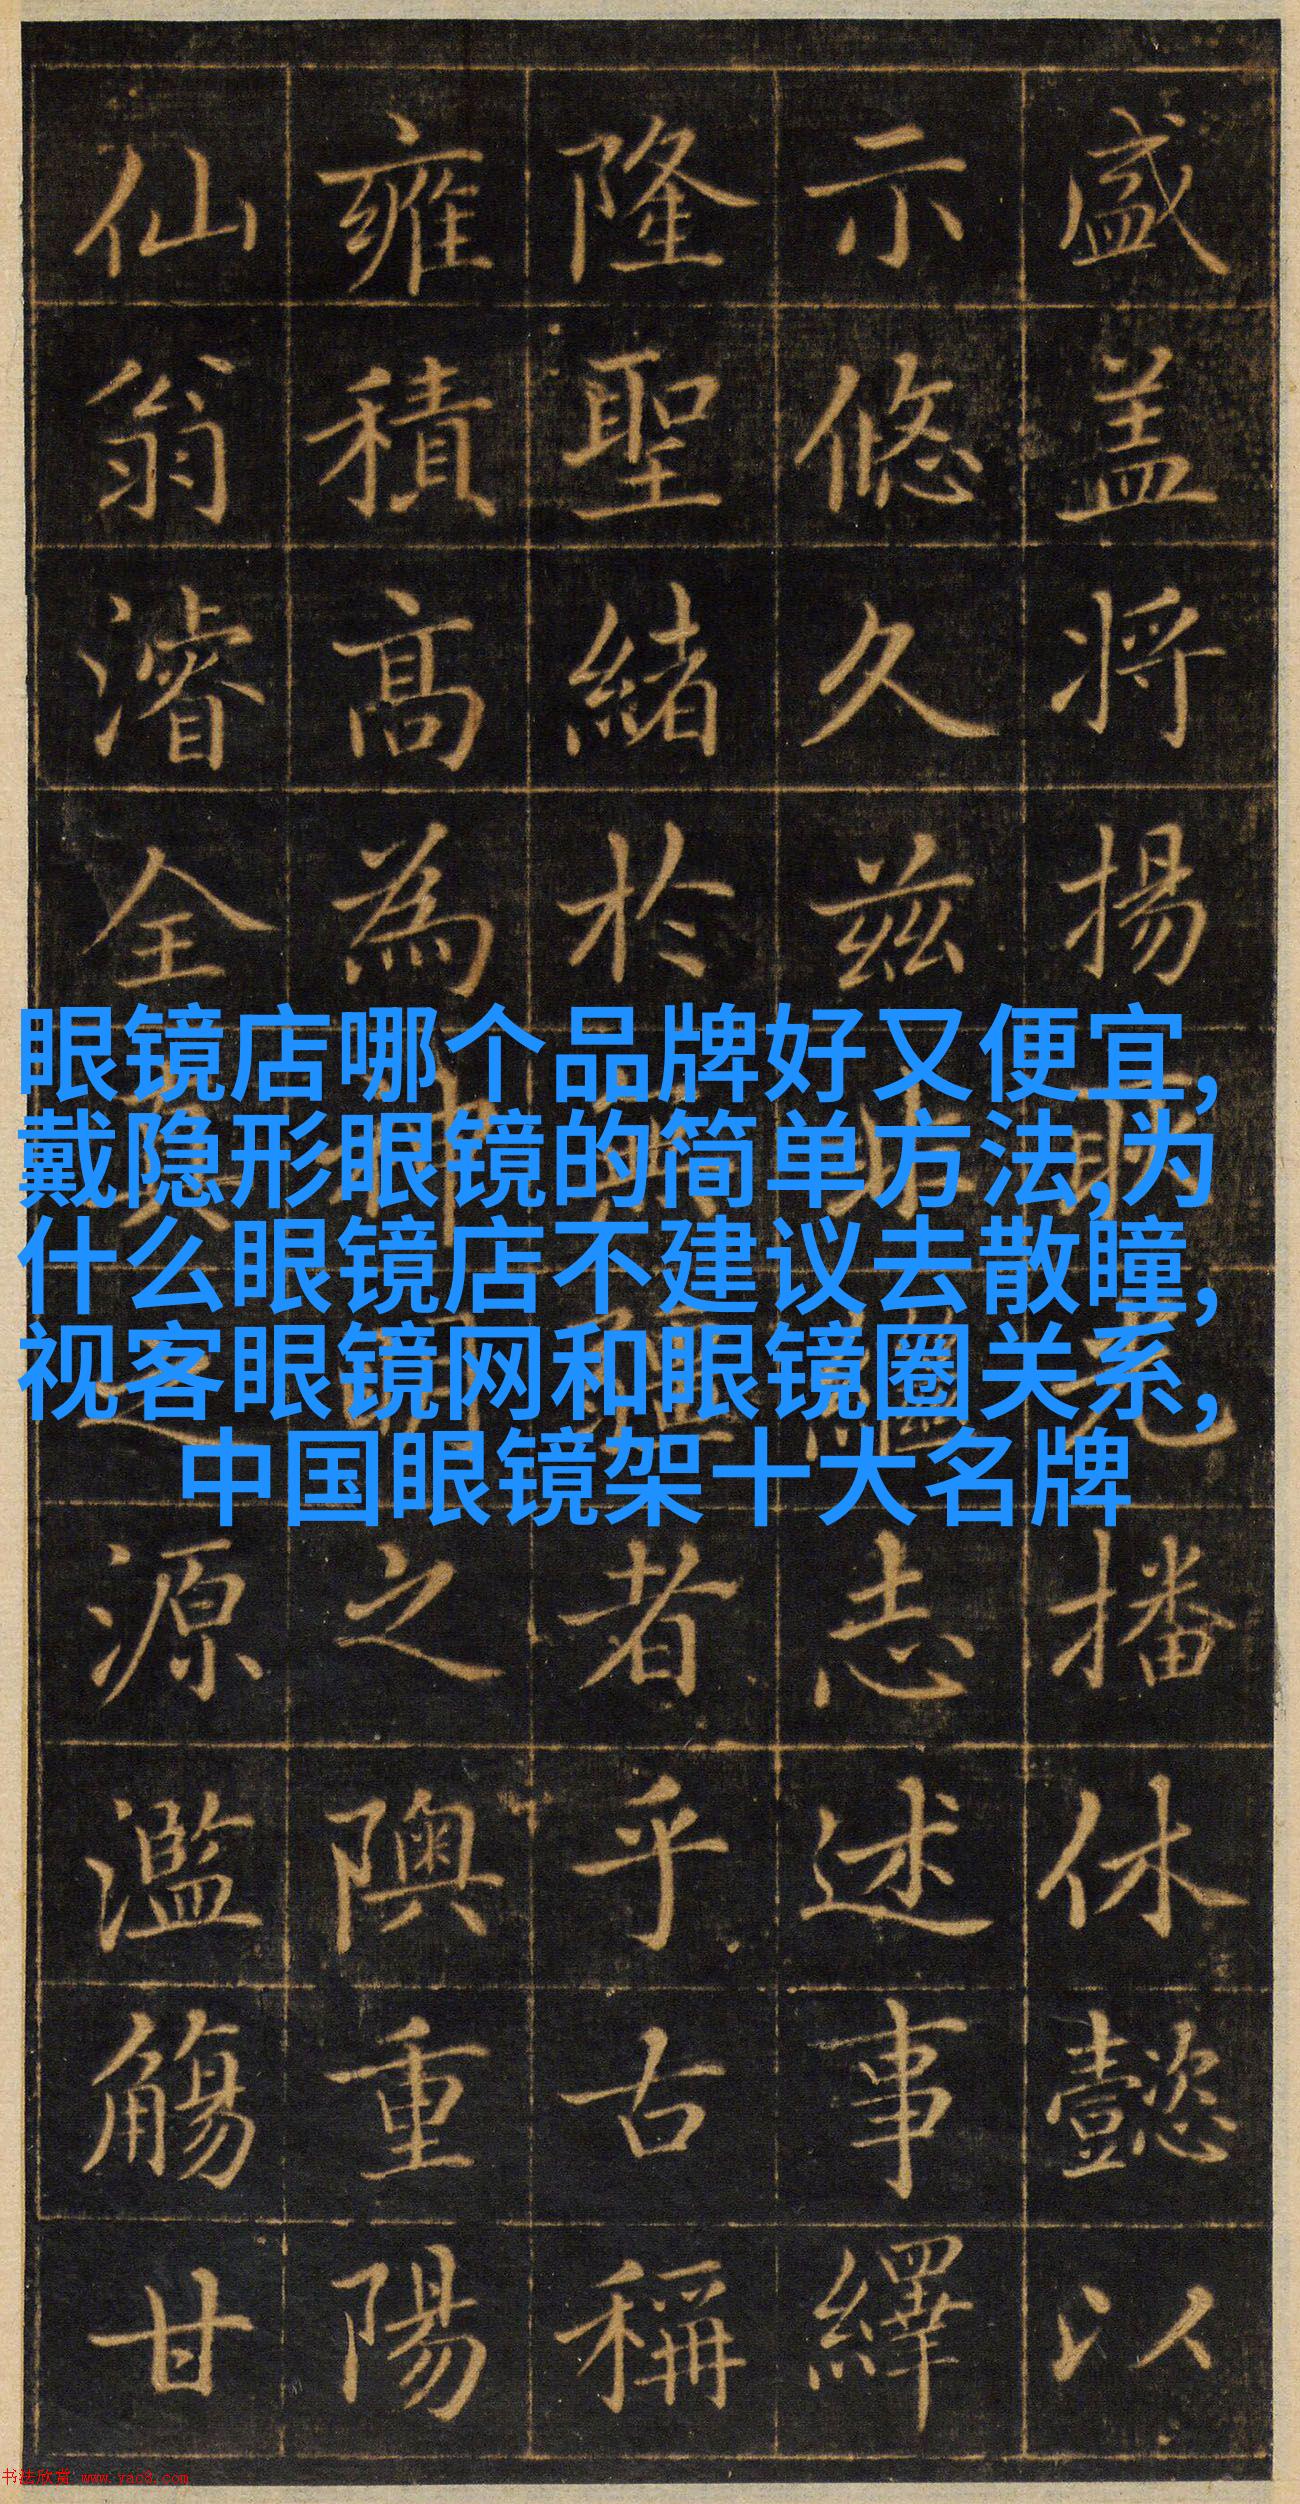 盛盖将揚播休懿以
示悠久兹志述事繹
隆聖緒於者乎古稱
雍積高為之隩重陽
仙翁濬全源濫觴甘
眼镜店哪个品牌好又便宜,
戴隐形眼镜的简单方法,为
什么眼镜店不建议去散瞳,
视客眼镜网和眼镜圈关系,
中国眼镜架十大名牌
书法欣赏 www.yac8.com